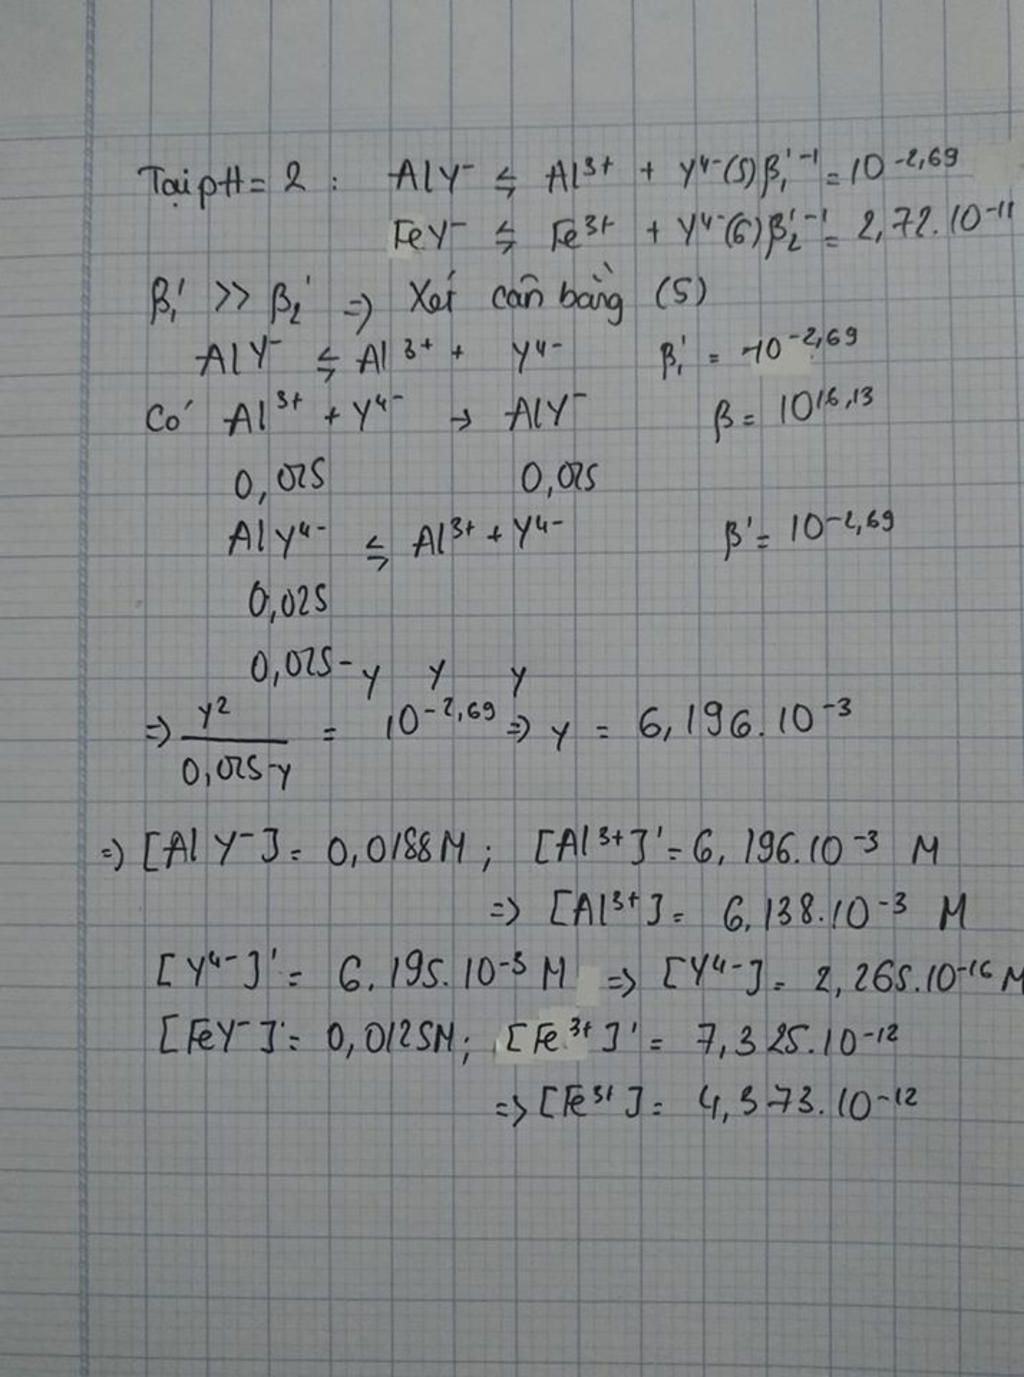 Tại pH = 2 : AlY⁻ ⇆ Al³⁺ + Y⁴⁻ (5) β₁'⁻¹ = 10⁻²,⁶⁹
FeY⁻ ⇆ Fe³⁺ + Y⁴⁻ (6) β₂'⁻¹ = 2,72.10⁻¹¹
β₁' >> β₂' => Xét cân bằng (5)
AlY⁻ ⇆ Al³⁺ + Y⁴⁻ β₁' = 10⁻²,⁶⁹
Có Al³⁺ + Y⁴⁻ → AlY⁻ β = 10¹⁶,¹³
0,025 0,025
AlY⁴⁻ ⇆ Al³⁺ + Y⁴⁻ β' = 10⁻²,⁶⁹
0,025
0,025-y y y
=> y²/(0,025-y) = 10⁻²,⁶⁹ => y = 6,196.10⁻³
=> [AlY⁻] = 0,0188M ; [Al³⁺]' = 6,196.10⁻³ M
=> [Al³⁺] = 6,138.10⁻³ M
[Y⁴⁻]' = 6,195.10⁻³ M => [Y⁴⁻] = 2,265.10⁻¹⁶ M
[FeY⁻]' = 0,0125M ; [Fe³⁺]' = 7,325.10⁻¹²
=> [Fe³⁺] = 4,373.10⁻¹²